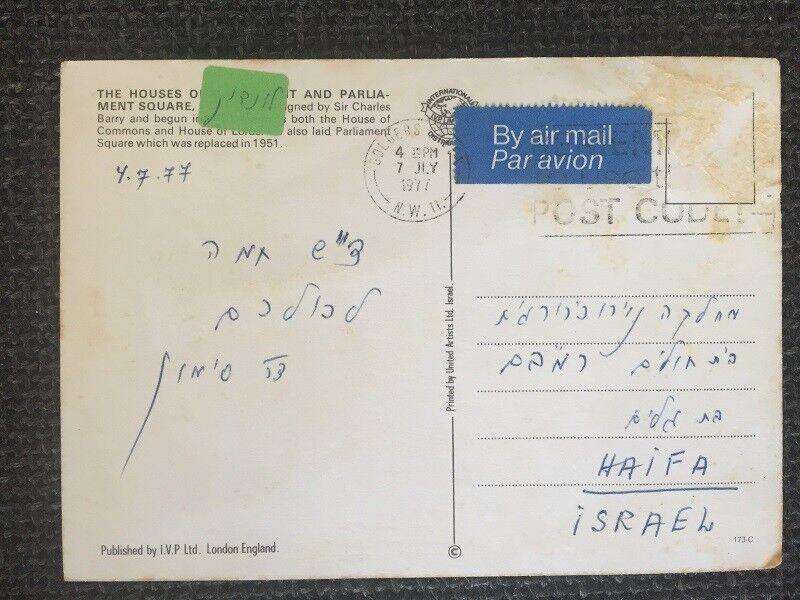 THE HOUSES O T AND PARLIA-
MENT SQUARE, igned by Sir Charles
Barry and begun i s both the House of
Commons and House of Lords. also laid Parliament
Square which was replaced in 1951.
לונדון
4.7.77
ד"ש חמה
לכולכם
דר סימון
INTERNATIONAL
GOLDERS
4 PM
7 JLY
1977
N.W. 11.
By air mail
Par avion
POST CODE!
Printed by United Artists Ltd. Israel.
מחלקה נוירוכירורגית
בית חולים רמב"ם
בת גלים
HAIFA
ISRAEL
173-C
Published by I.V.P Ltd. London England.
©